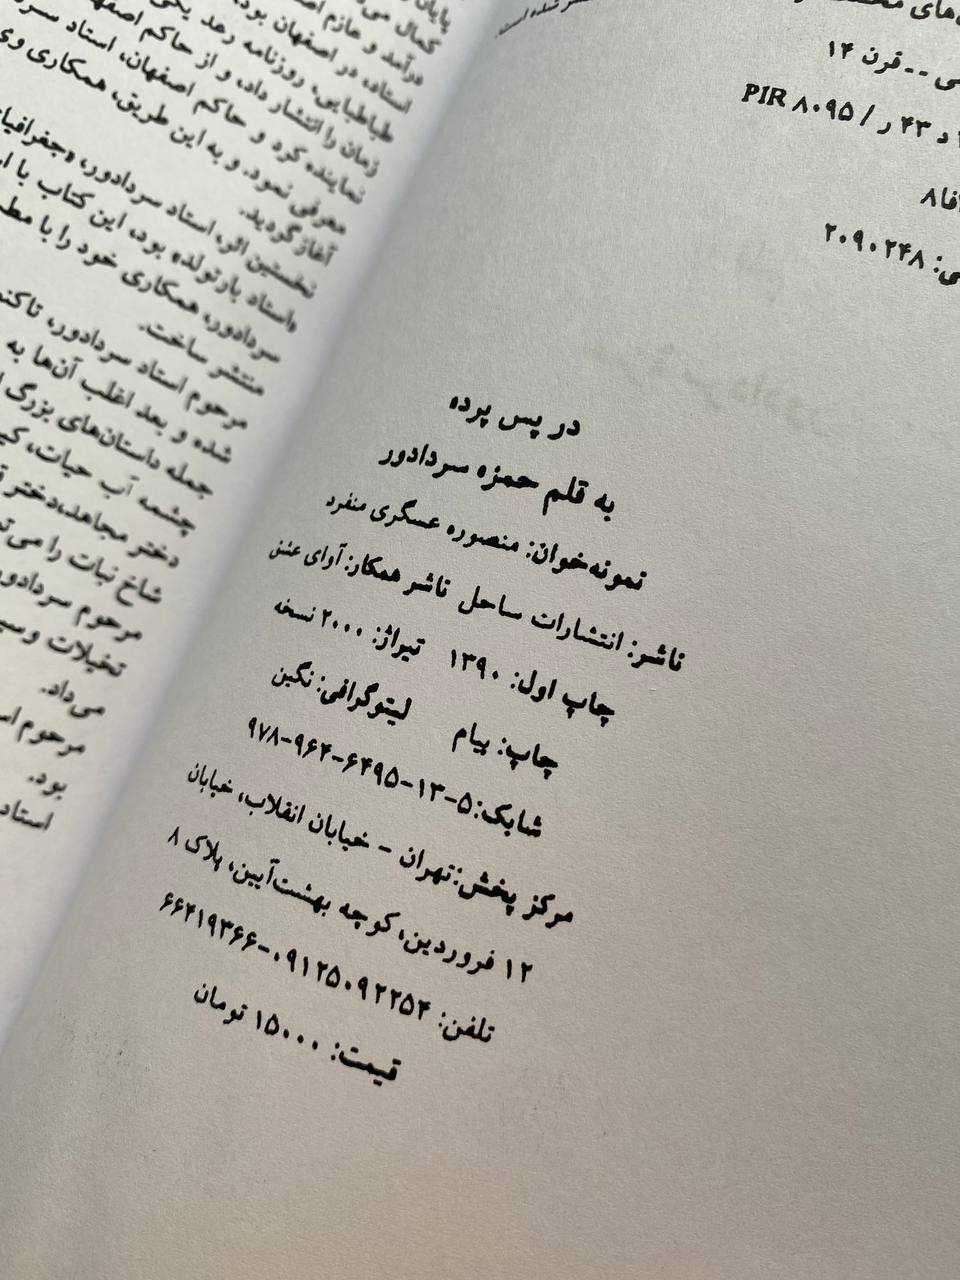 شده است.
قرن ۱۴
PIR ۸۰۹۵ / د ۴۳ ر
۲۰۹۰۲۴۸
در پس پرده
به قلم حمزه سردادور
نمونه‌خوان: منصوره عسگری منفرد
ناشر: انتشارات ساحل ناشر همکار: آوای عشق
چاپ اول: ۱۳۹۰ تیراژ: ۲۰۰۰ نسخه
چاپ: پیام لیتوگرافی: نگین
شابک: ۵-۱۳-۶۴۹۵-۹۶۴-۹۷۸
مرکز پخش: تهران - خیابان انقلاب، خیابان
۱۲ فروردین، کوچه بهشت‌آیین، پلاک ۸
تلفن: ۰۹۱۲۵۰۹۲۲۵۴-۶۶۴۱۹۳۶۶
قیمت: ۱۵۰۰۰ تومان
استاد، در اصفهان بود،
طباطبایی، روزنامه رعد
زمان را انتشار داد، و از حاکم
نماینده کرد و حاکم اصفهان، استاد
معرفی نمود. و به این طریق، همکاری
آغاز گردید.
نخستین اثر، استاد سردادور،
«استاد بارتولد» بود، این کتاب با
سردادور، همکاری خود را با
منتشر ساخت.
مرحوم استاد سردادور،
شده و بعد اغلب آن‌ها به
جمله داستان‌های بزرگ
چشمه آب حیات،
دختر مجاهد، دختر
شاخ نبات را
مرحوم
تخیلات و
می‌داد.
مرحوم
بود.
استاد